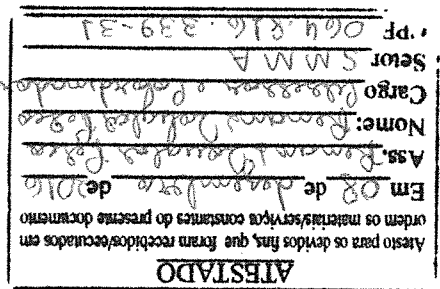 ATESTADO
Atesto para os devidos fins, que foram recebidos/executados em
ordem os materiais/serviços constantes do presente documento
Em 08 de dezembro de 2016
Ass.
Nome: Renan Douglas
Cargo Assessor e Coordenador
Setor SMMA
CPF 064.816.339-31